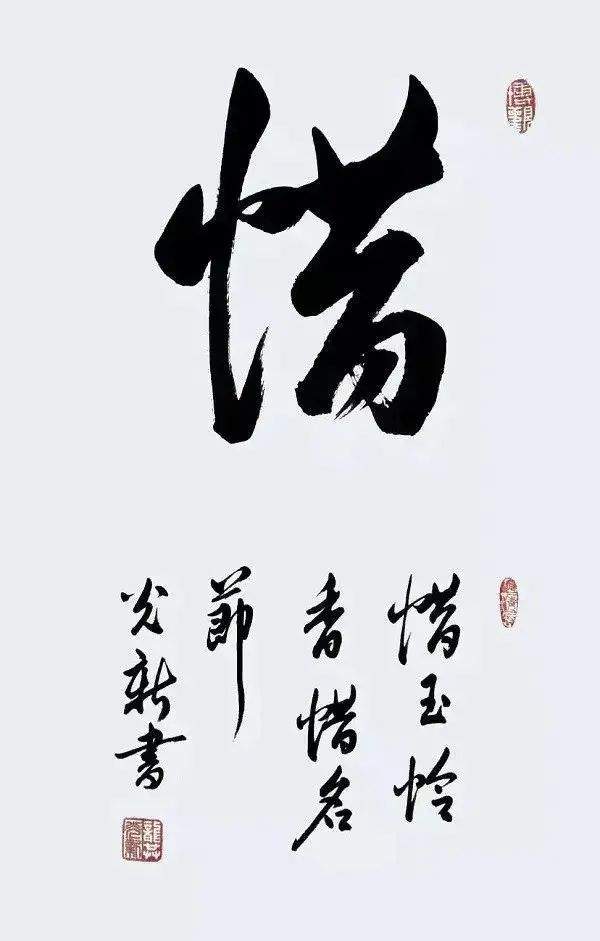 惜
惜玉怜
香惜名
節
光新書